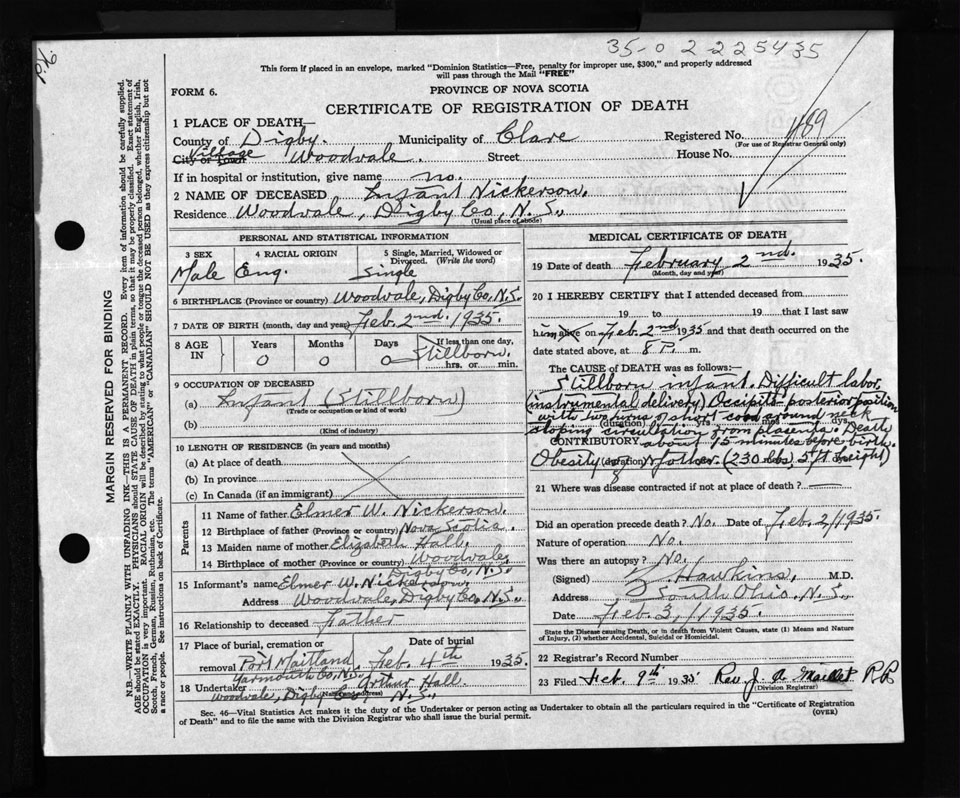 35-0 2-225435
P.X.
This form if placed in an envelope, marked "Dominion Statistics—Free, penalty for improper use, $300," and properly addressed
will pass through the Mail "FREE"
FORM 6.
PROVINCE OF NOVA SCOTIA
CERTIFICATE OF REGISTRATION OF DEATH
MARGIN RESERVED FOR BINDING
N.B.—WRITE PLAINLY WITH UNFADING INK—THIS IS A PERMANENT RECORD. Every item of information should be carefully supplied.
AGE should be stated EXACTLY. PHYSICIANS should STATE CAUSE OF DEATH in plain terms, so that it may be properly classified. Exact statement of
OCCUPATION is very important. RACIAL ORIGIN will be described by stating to what people or tongue the deceased person belonged, whether English, Irish,
Scotch, French, German, Russian, Ruthenian, etc. The terms "AMERICAN" or "CANADIAN" SHOULD NOT BE USED as they express citizenship but not
a race or people. See instructions on back of Certificate.
1 PLACE OF DEATH—
County of Digby. Municipality of Clare Registered No. 489
(For use of Registrar General only)
Village
City or Town Woodvale. Street House No.
If in hospital or institution, give name no.
2 NAME OF DECEASED Infant Nickerson.
Residence Woodvale, Digby Co, N.S.
(Usual place of abode)
PERSONAL AND STATISTICAL INFORMATION
3 SEX 4 RACIAL ORIGIN 5 Single, Married, Widowed or
Divorced. (Write the word)
Male Eng. Single
6 BIRTHPLACE (Province or country) Woodvale, Digby Co, N.S.
7 DATE OF BIRTH (month, day and year) Feb. 2nd. 1935.
8 AGE IN Years Months Days If less than one day,
0 0 0 Stillborn.
hrs. or min.
9 OCCUPATION OF DECEASED
(a) Infant (Stillborn)
(Trade or occupation or kind of work)
(b)
(Kind of industry)
10 LENGTH OF RESIDENCE (in years and months)
(a) At place of death
(b) In province
(c) In Canada (if an immigrant)
Parents
11 Name of father Elmer W. Nickerson.
12 Birthplace of father (Province or country) Nova Scotia.
13 Maiden name of mother Elizabeth Hall.
14 Birthplace of mother (Province or country) Woodvale,
Digby Co, N.S.
15 Informant's name Elmer W. Nickerson.
Address Woodvale, Digby Co, N.S.
16 Relationship to deceased Father
17 Place of burial, cremation or Date of burial
removal Port Maitland, Feb. 4th 1935.
Yarmouth Co, N.S.
18 Undertaker Arthur Hall.
Woodvale, Digby Co, N.S.
MEDICAL CERTIFICATE OF DEATH
19 Date of death February 2nd. 1935.
(Month, day and year)
20 I HEREBY CERTIFY that I attended deceased from
19 to 19 that I last saw
him alive on Feb. 2nd 1935 and that death occurred on
date stated above, at 8 P. m.
The CAUSE OF DEATH was as follows:—
Stillborn infant. Difficult labor,
(instrumental delivery) Occipito posterior position
with two turns of short cord around neck
(duration) yrs. mos. dys.
stoping circulation from placenta. Death
CONTRIBUTORY about 15 minutes before birth.
Obesity (duration) of Mother. (230 lbs, 5 ft. height)
21 Where was disease contracted if not at place of death?
Did an operation precede death? No. Date of Feb. 2/1935.
Nature of operation No.
Was there an autopsy? No.
(Signed) Z. Hawkins, M.D.
Address South Ohio, N.S.
Date Feb. 3, 1935.
State the Disease causing Death, or in death from Violent Causes, state (1) Means and Nature
of Injury, (2) whether Accidental, Suicidal or Homicidal.
22 Registrar's Record Number
23 Filed Feb. 9th. 1935 Rev. J. A. Maillet P.P.
(Division Registrar)
Sec. 46—Vital Statistics Act makes it the duty of the Undertaker or person acting as Undertaker to obtain all the particulars required in the "Certificate of Registration
of Death" and to file the same with the Division Registrar who shall issue the burial permit.
(OVER)